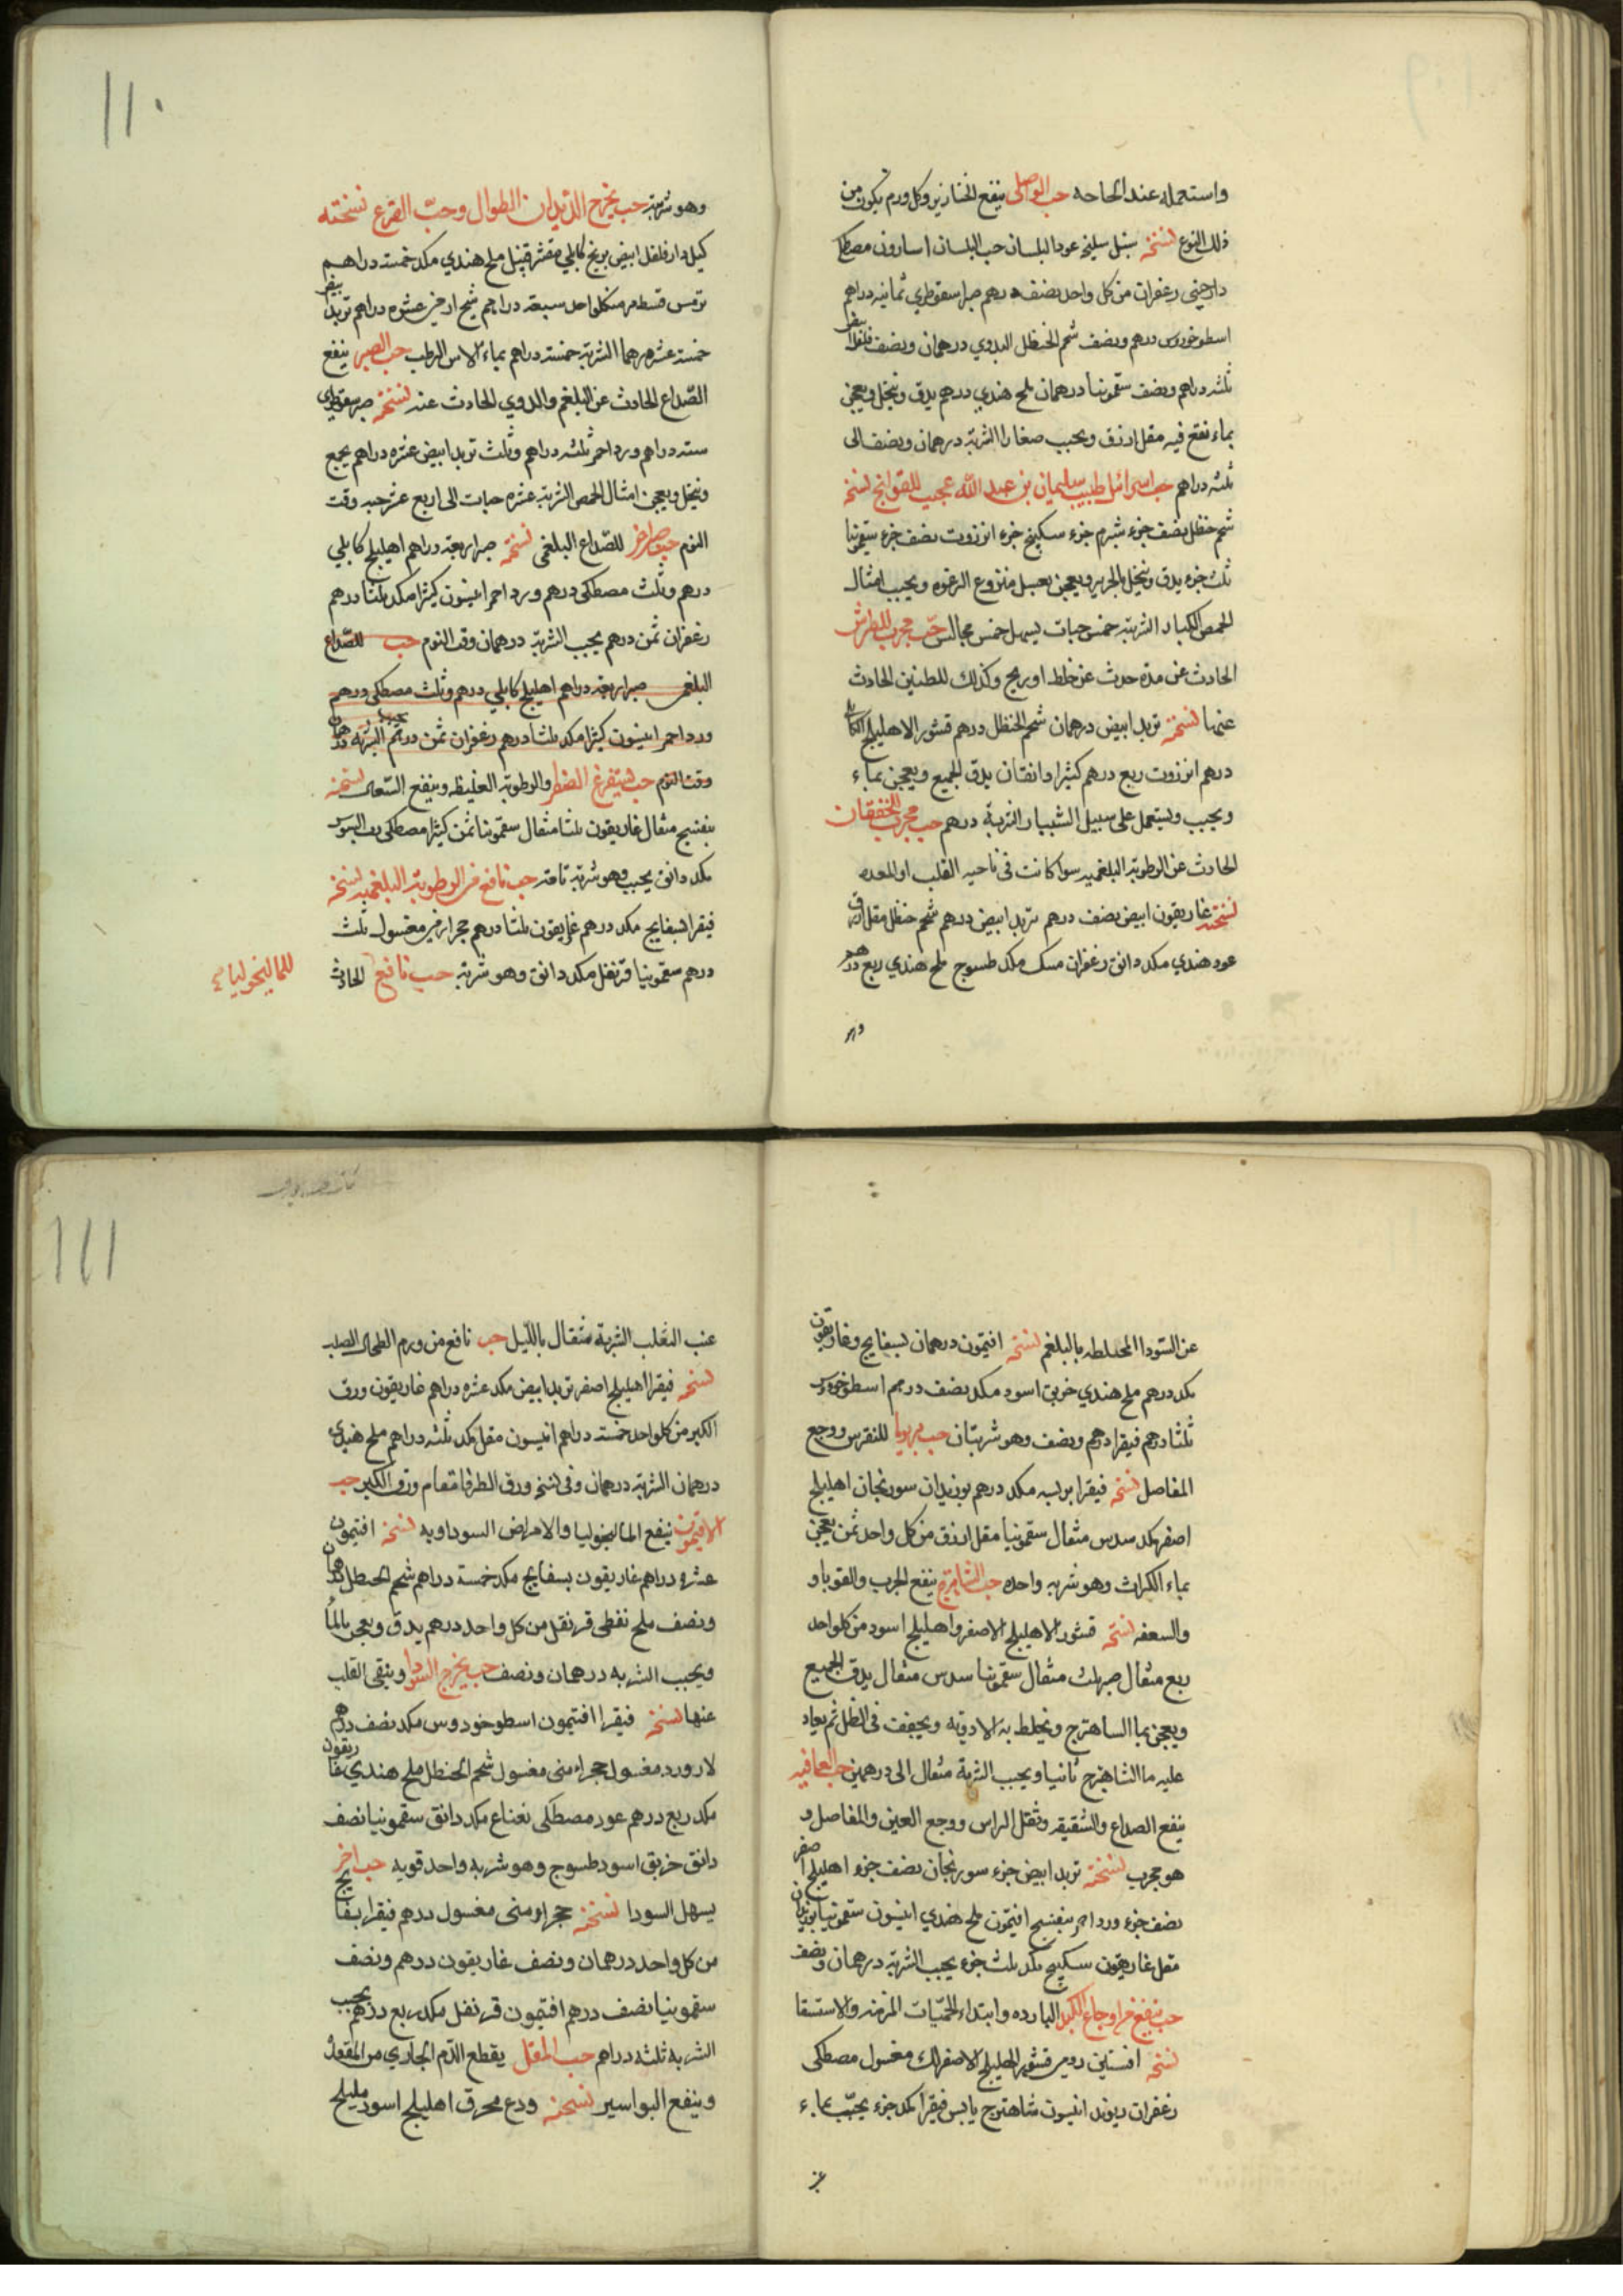 واستعماله عند الحاجه حب الواصلى ينفع الخنازير وكل ورم يكون من
ذلك النوع نسخته سنبل سليخه عود البلسان حب البلسان اسارون مصطكى
دارصينى زعفران من كل واحد نصف درهم صبر اسقوطري ثمانيه دراهم
اسطوخودس درهم ونصف شحم الحنظل البدوي درهمان ونصف
ثلثه دراهم ونصف سقمونيا درهمان ملح هندي درهم يدق وينخل ويعجن
بماء نقع فيه مقل ازرق ويحبب صغارا الشربة درهمان ونصف الى
ثلثه دراهم حب اسرائيل طبيب سليمان بن عبد الله عجيب للقولنج نسخته
شحم حنظل نصف جزء شبرم جزء سكبينج جزء انزروت نصف جزء سقمونيا
ثلث جزء يدق وينخل بالحريره ويعجن بعسل منزوع الرغوه ويحبب امثال
الحمص الكبار الشربة خمس حبات يسهل خمس مجالس حب مجرب للطرش
الحادث عن مدة حدث عن خلط او ريح وكذلك للطنين الحادث
عنها نسخته تربد ابيض درهمان شحم الحنظل درهم قشور الاهليلج الكابلى
درهم انزروت ربع درهم كثيرا دانقان يدق الجميع ويعجن بماء
ويحبب ويستعمل على سبيل الشبيار الشربة درهم حب مجرب للخفقان
الحادث عن الرطوبة البلغميه سوا كانت فى ناحيه القلب او المعده
نسخته غاريقون ابيض نصف درهم تربد ابيض درهم شحم حنظل مقل ازرق
عود هندي مكد دانق زعفران مسك مكد طسوج ملح هندي ربع درهم
وهو
١١٠
وهو شربة حب يخرج الديدان الطوال وحب القرع نسخته
دارفلفل ابيض برنج كابلي مقشر قنبيل ملح هندي مكد خمسة دراهم
ترمس قسط مر من كلواحد سبعة دراهم شيح ارمنى عشره دراهم تربد ابيض
خمسة عشر درهما الشربة خمسة دراهم بماء الاس الرطب حب الصبر ينفع
الصداع الحادث عن البلغم والدوي الحادث عنه نسخته صبر سقوطري
ستة دراهم ورد احمر ثلثه دراهم وثلث تربد ابيض عشرة دراهم يجمع
وينخل ويعجن امثال الحمص الشربة عشره حبات الى اربع عشر حبه وقت
النوم حب للصداع البلغمى نسخته صبر اربعة دراهم اهليلج كابلي
درهم وثلث مصطكى درهم ورد احمر انيسون كثيرا مكد ثلثا درهم
زعفران ثمن درهم يحبب الشربة درهمان وقت النوم حب للصداع
البلغمى صبر اربعة دراهم اهليلج كابلي درهم وثلث مصطكى درهم
ورد احمر انيسون كثيرا مكد ثلثا درهم زعفران ثمن درهم يحبب الشربة درهمان
وقت النوم حب يستفرغ والرطوبة الغليظه وينفع السعال نسخته
بنفسج مثقال غاريقون ثلثا مثقال سقمونيا ثمن كثيرا مصطكى رب السوس
مكد دانق يحبب وهو شربة تامة حب نافع من الرطوبة البلغميه نسخته
فيقرا بسفايج مكد درهم غاريقون ثلثا درهم حجر ارمنى مغسول ثلث
درهم سقمونيا قرنفل مكد دانق وهو شربة حب نافع الحادث
للماليخوليا
عن السودا المختلطه بالبلغم نسخته افتيمون درهمان بسفايج وغاريقون
مكد درهم ملح هندي خربق اسود مكد نصف درهم اسطوخودس
ثلثا درهم فيقرا درهم ونصف وهو شربتان حب للنقرس ووجع
المفاصل نسخته فيقرا مكد درهم بوزيدان سورنجان اهليلج
اصفر مكد سدس مثقال سقمونيا مقل ازرق من كل واحد ثمن يعجن
بماء الكراث وهو شربه واحده حب الشاهترج ينفع الجرب والقوبا و
والسعفه نسخته قشور الاهليلج الاصفر واهليلج اسود من كلواحد
ربع مثقال صبر ثلث مثقال سقمونيا سدس مثقال يدق الجميع
ويعجن بما الساهترج ويخلط به الادوية ويجفف فى الظل ثم يعاد
عليه ما الشاهترج ثانيا ويحبب الشربة مثقال الى درهمين حب العافيه
ينفع الصداع والشقيقه وثقل الراس ووجع العين والمفاصل و
هو مجرب نسخته تربد ابيض جزء سورنجان نصف جزء اهليلج اصفر
نصف جزء ورد احمر بنفسج افتيمون ملح هندي انيسون سقمونيا بوزيدان
مقل غاريقون سكبينج مكد ثلث جزء يحبب الشربة درهمان ونصف
حب ينفع من اوجاع الكبد البارده وابتداء الحميات المزمنه والاستسقا
نسخته افسنتين رومى قشور اهليلج الاصفر لك مغسول مصطكى
زعفران ريوند انيسون شاهترج يابس فيقرا مكد جزء يحبب بماء
عنب
١١١
عنب الثعلب الشربة مثقال بالليل حب نافع من ورم الطحال الصلب
نسخته فيقرا اهليلج اصفر تربد ابيض مكد عشره دراهم غاريقون ورق
الكبر من كلواحد خمسة دراهم انيسون مقل مكد ثلثه دراهم ملح هندي
درهمان الشربة درهمان وفى نسخه ورق الطرفا مقام ورق الكبر حب
الافتيمون ينفع الماليخوليا والامراض السوداويه نسخته افتيمون
عشره دراهم غاريقون بسفايج مكد خمسة دراهم شحم الحنظل درهمان
ونصف ملح نفطى قرنفل من كل واحد درهم يدق ويعجن بالما
ويحبب الشربه درهمان ونصف حب يخرج السودا وينقى القلب
عنها نسخته فيقرا افتيمون اسطوخودوس مكد نصف درهم
لازورد مغسول حجر ارمنى مغسول شحم الحنظل ملح هندي غاريقون
مكد ربع درهم عود مصطكى نعناع مكد دانق سقمونيا نصف
دانق خربق اسود طسوج وهو شربه واحد قويه حب اخر
يسهل السودا نسخته حجر ارمنى مغسول درهم فيقرا بسفايج
من كل واحد درهمان ونصف غاريقون درهم ونصف
سقمونيا نصف درهم افتيمون قرنفل مكد ربع درهم يحبب
الشربه ثلثه دراهم حب المقل يقطع الدم الجاري من المقعدة
وينفع البواسير نسخته ودع محرق اهليلج اسود بليلج